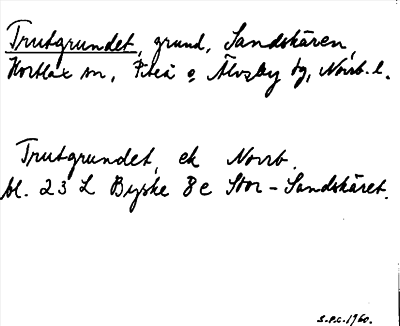 Trutgrundet, grund, Sandskären,
Hortlax sn, Piteå o Älvsby tg, Norrb. l.
Trutgrundet, ek Norrb.
bl. 23 L Byske 8e Stor-Sandskäret.
S.P.C. 1960.